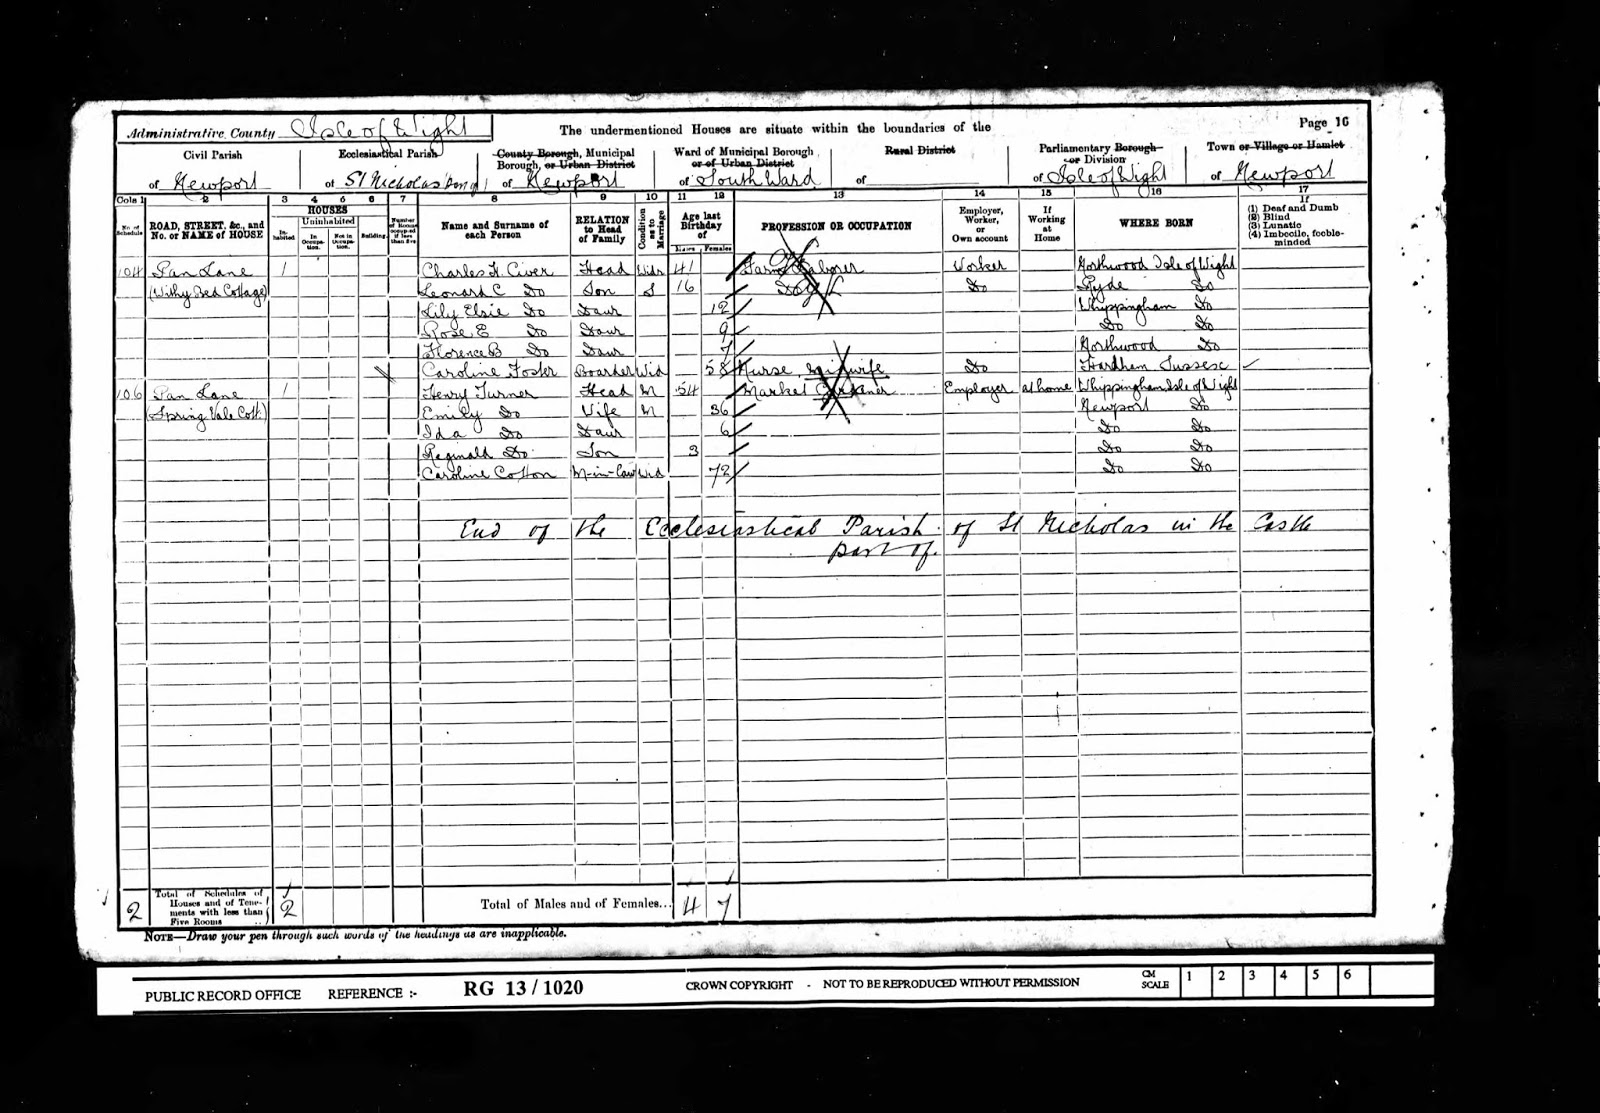 Administrative County Isle of Wight
The undermentioned Houses are situate within the boundaries of the
Page 16
Civil Parish
of Newport
Ecclesiastical Parish
of St Nicholas
County Borough, Municipal Borough, or Urban District
of Newport
Ward of Municipal Borough or of Urban District
of South Ward
Rural District
of
Parliamentary Borough or Division
of Isle of Wight
Town or Village or Hamlet
of Newport
Cols 1 2 3 4 5 6 7 8 9 10 11 12 13 14 15 16 17
No. of Schedule
ROAD, STREET, &c., and No. or NAME of HOUSE
HOUSES
Inhabited
Uninhabited
In Occupation.
Not in Occupation.
Building
Number of Rooms occupied if less than five
Name and Surname of each Person
RELATION to Head of Family
Condition as to Marriage
Age last Birthday of
Males Females
PROFESSION OR OCCUPATION
Employer, Worker, or Own account
If Working at Home
WHERE BORN
If
(1) Deaf and Dumb
(2) Blind
(3) Lunatic
(4) Imbecile, feeble-minded
104 Pan Lane 1 Charles H. Civer Head Widr 41 Farm Laborer Worker Northwood Isle of Wight
(Withy Bed Cottage) Leonard C Do Son S 16 Do Do Ryde Do
Lily Elsie Do Daur 12 Whippingham Do
Rose E Do Daur 9 Do Do
Florence B Do Daur 7 Northwood Do
Caroline Foster Boarder Wid 58 Nurse, Midwife Do Hardham Sussex
106 Pan Lane 1 Henry Turner Head M 54 Market Gardener Employer at home Whippingham Isle of Wight
(Spring Vale Cott.) Emily Do Wife M 36 Newport Do
Ida Do Daur 6 Do Do
Reginald Do Son 3 Do Do
Caroline Cotton M-in-law Wid 72 Do Do
End of the Ecclesiastical Parish of St Nicholas in the Castle
part of.
2 Total of Schedules of Houses and of Tenements with less than Five Rooms 2 Total of Males and of Females... 4 7
NOTE—Draw your pen through such words of the headings as are inapplicable.
PUBLIC RECORD OFFICE REFERENCE :- RG 13/1020 CROWN COPYRIGHT - NOT TO BE REPRODUCED WITHOUT PERMISSION CM SCALE 1 2 3 4 5 6